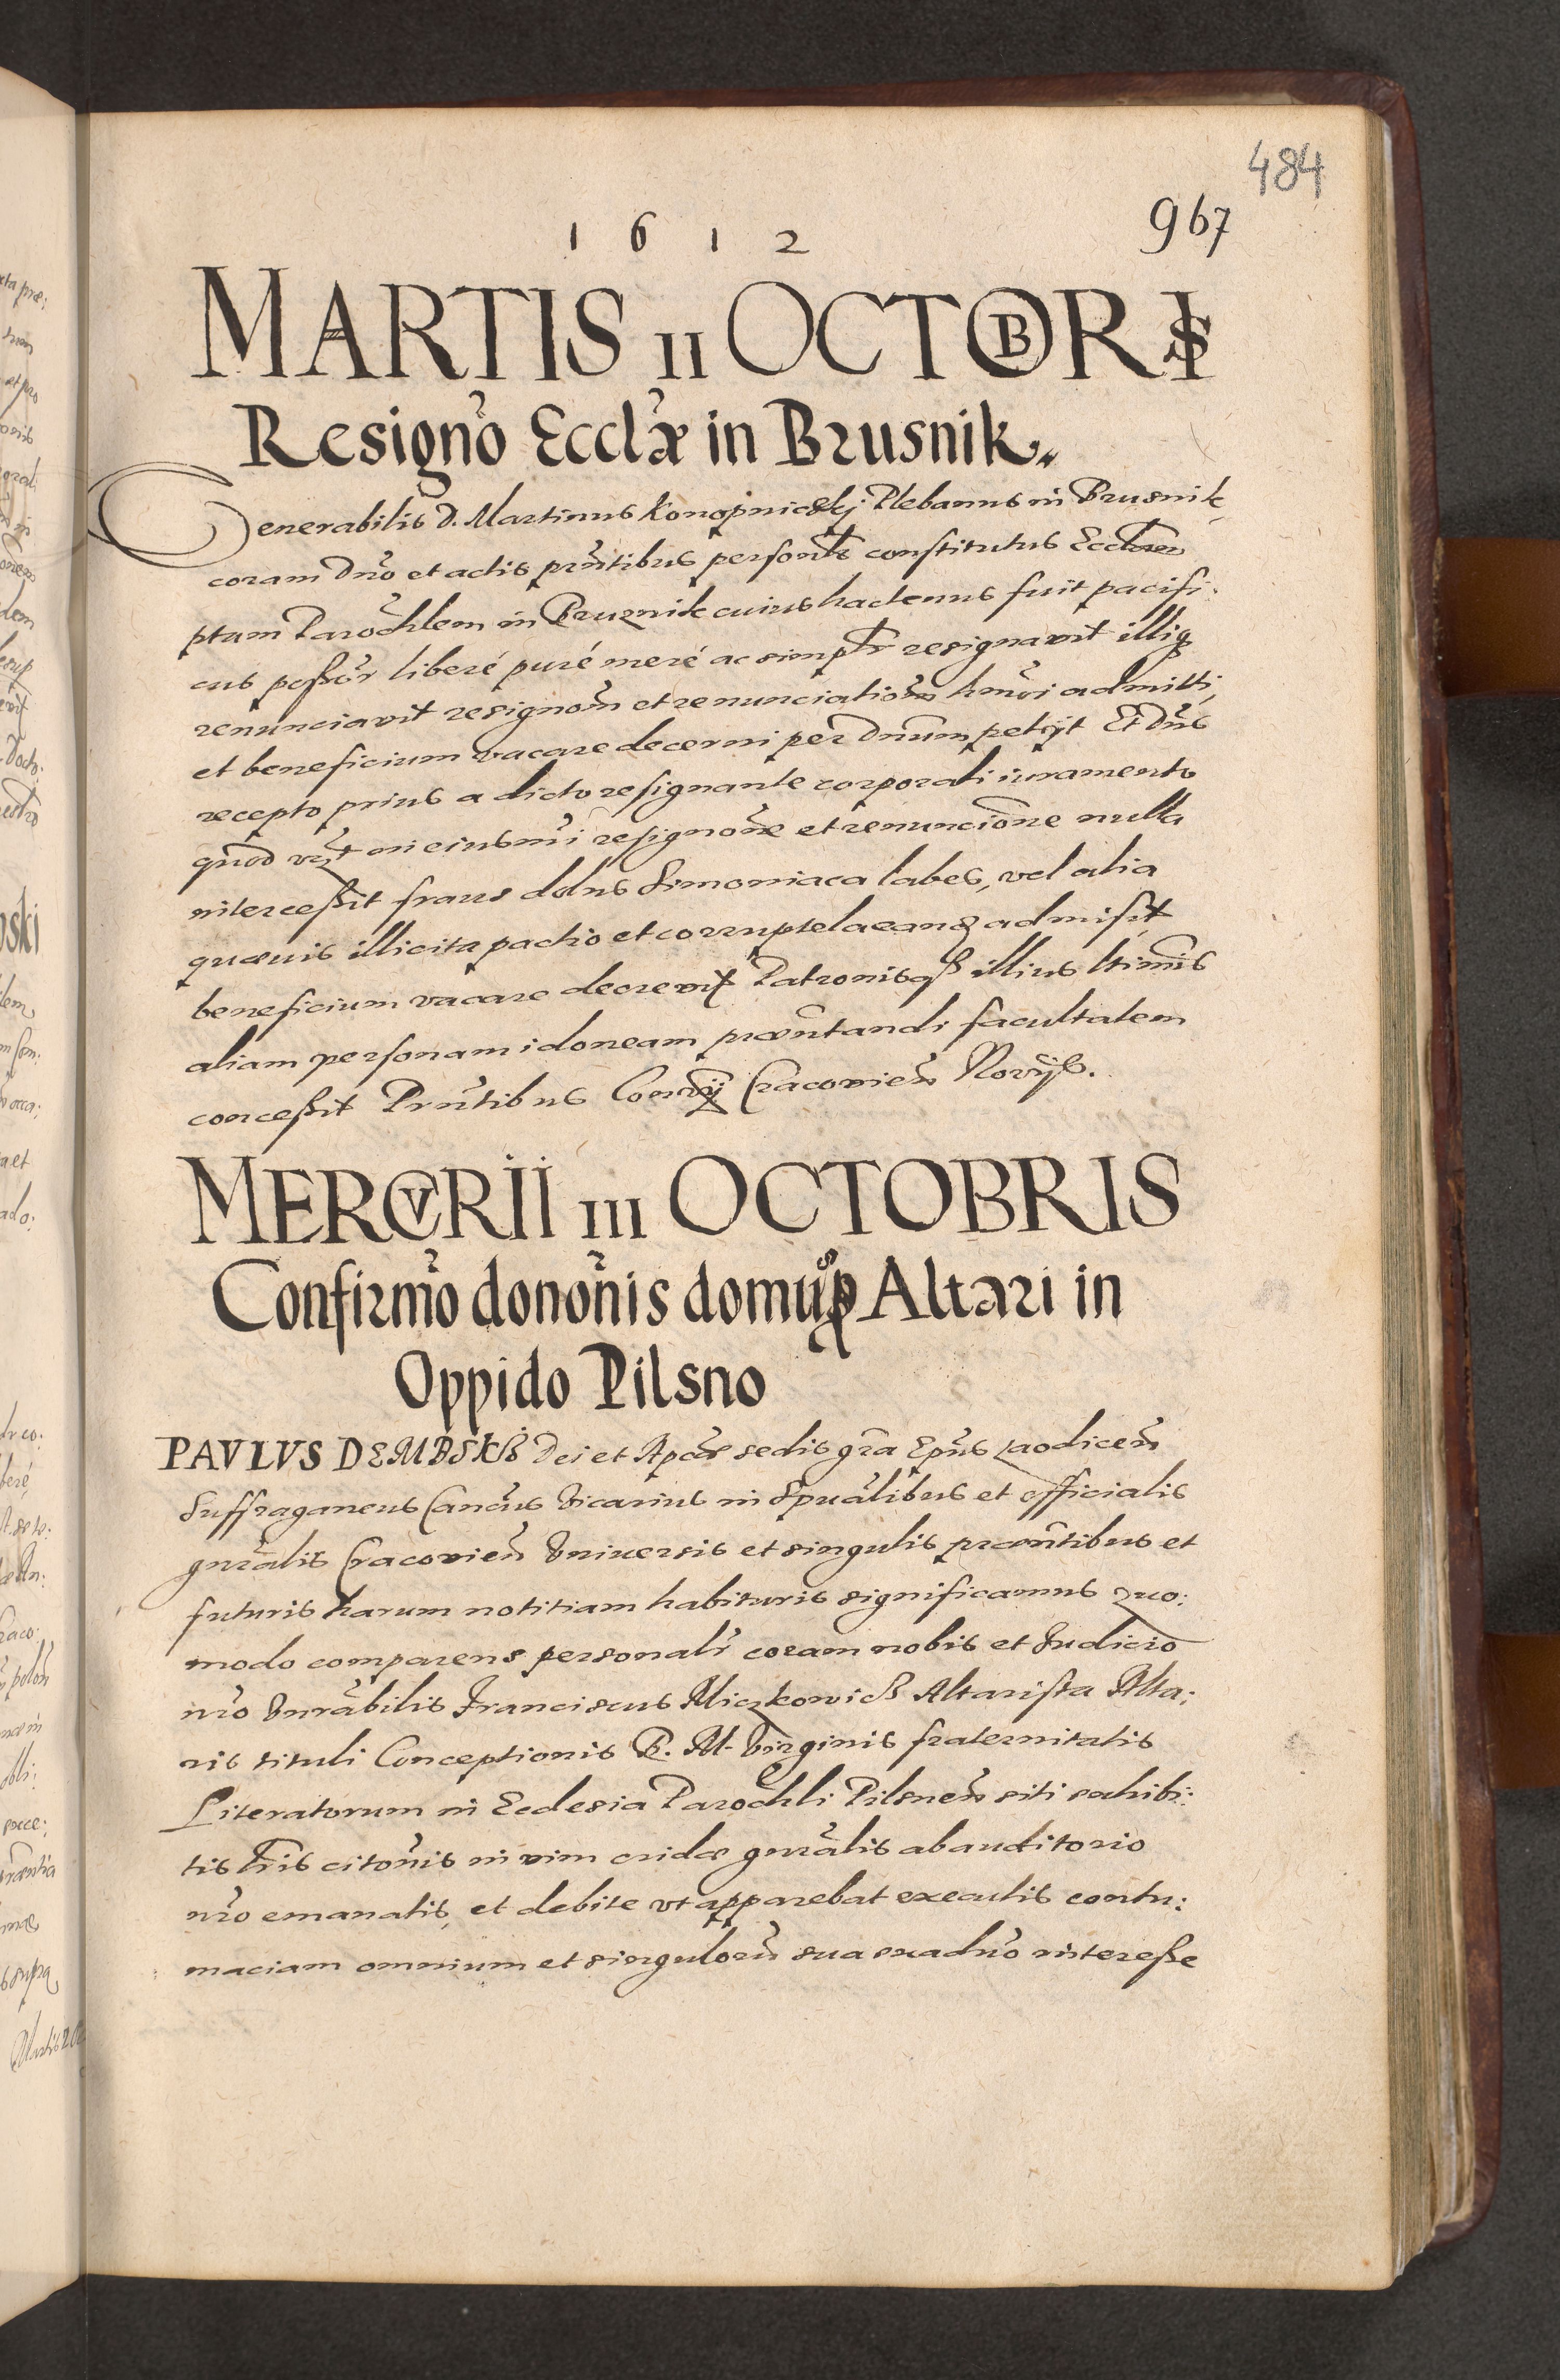 484
967
1612
MARTIS II OCTOBRIS
Resigno Ecclæ in Brusnik
Venerabilis D. Martinus Konopnicskj Plebanus in Brusnik
coram Dno et actis prntibus personlr constitutus Ecclam
ptam Parochlem in Bruznik cuius hactenus fuit pacifi:
cus possor liberé puré meré ac simplr resignavit illiq
renunciavit resignom et renunciationem hmoi admitti,
et beneficium vacare decerni per Dnum petijt Et Dns
recepto prius a dicto resignante corporali iuramento
quod in eiusmoi resignone et renuncione nulla
intercessit fraus dolus simoniaca labes, vel alia
quævis illicita pactio et corruptela eanq admisit
beneficium vacare decrevit Patronisqß illius ltimis
aliam personam idoneam præntandi facultatem
concessit Prntibus Cracovien Norÿs.
MERCVRII III OCTOBRIS
Confirmo dononis domus p Altari in
Oppido Pilsno
PAVLVS DEMBSKI Dei et Apcæ sedis gra Epus Laodicen
Suffraganeus Cancus Vicarius in Spualibus et officialis
gnralis Cracovien Vniversis et singulis præntibus et
futuris harum notitiam habituris significamus quo:
modo comparens personalr coram nobis et Iudicio
nro Vnrabilis Franciscus Miczkowicß Altarista Alta:
ris tituli Conceptionis B. M. Virginis fraternitatis
Literatorum in Ecclesia Parochli Pilsnen siti exhibi:
tis lris citonis in vim cridæ gnralis ab auditorio
nro emanatis, et debite vt apparebat executis contu:
maciam omnium et singuloru sua exaduo interesse